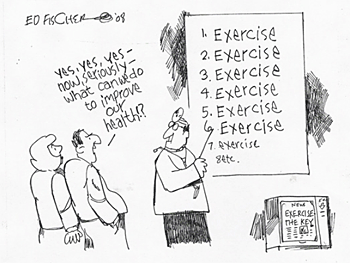 ED FISCHER '08
yes, yes, yes-
now, seriously-
what can we do
to improve
our
health!?
1. Exercise
2. Exercise
3. Exercise
4. Exercise
5. Exercise
6 Exercise
7. exercise
8etc.
NEW
EXERCISE
THE KEY